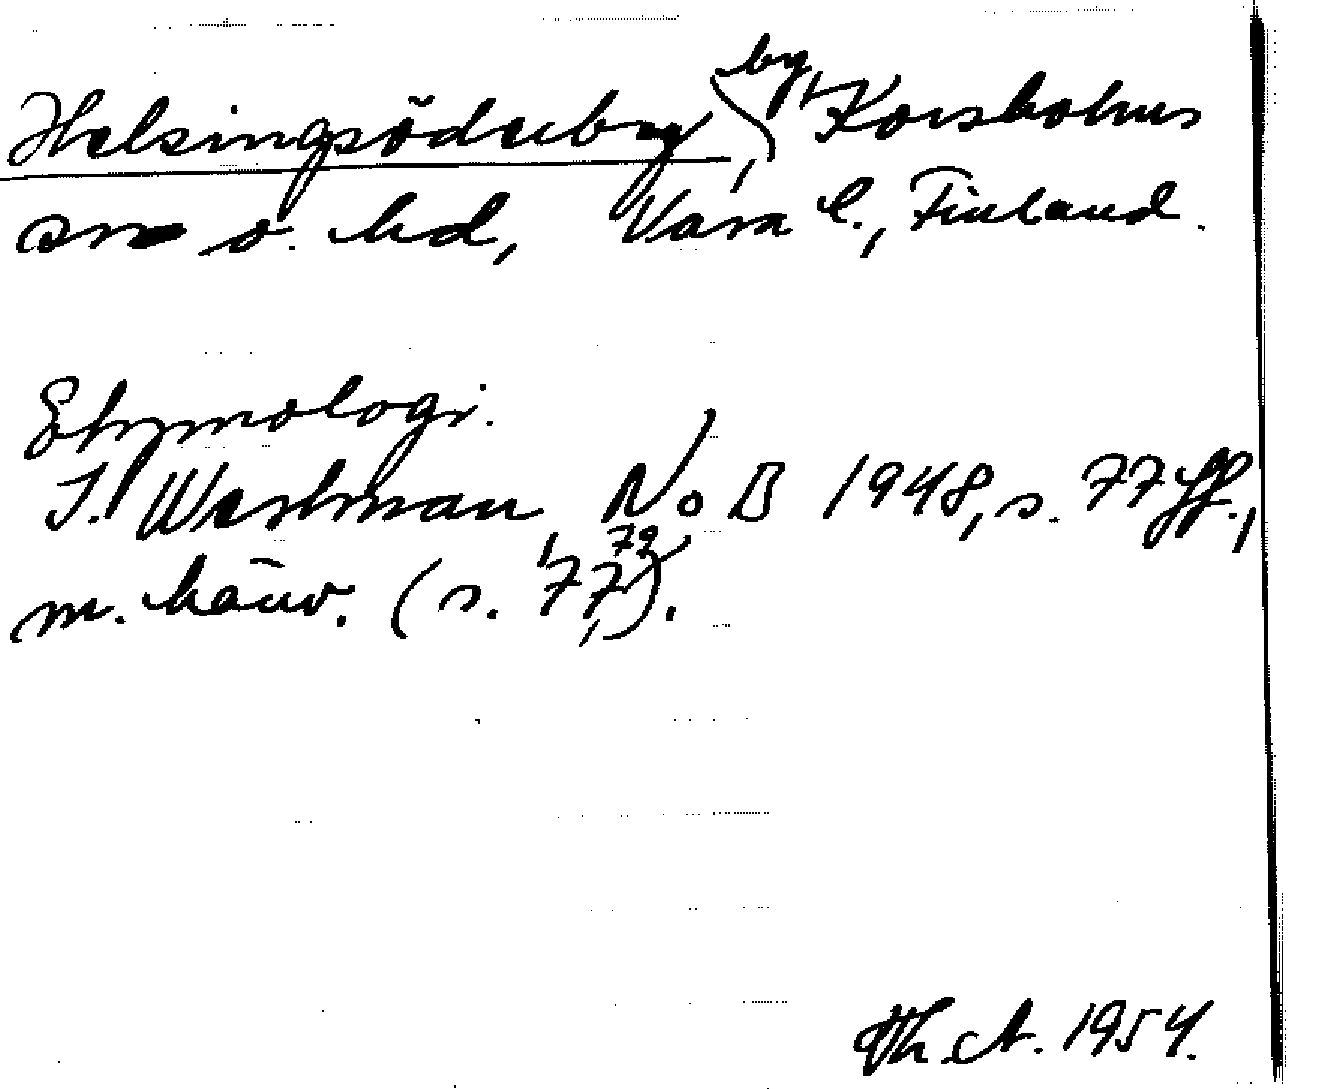 Helsingsöderby, by, Korsholms
sn o. hd, Vasa l., Finland.
Etymologi.
I. Westman, NoB 1948, s. 77 ff.,
m. hänv. (s. 77, 79).
1954.